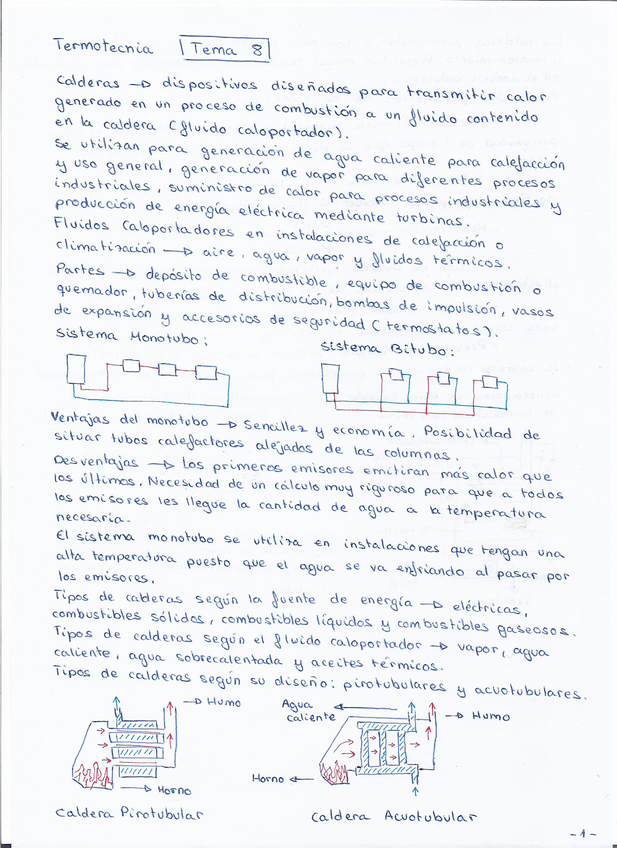 Termotecnia Tema 8
Calderas → dispositivos diseñados para transmitir calor
generado en un proceso de combustión a un fluido contenido
en la caldera (fluido caloportador).
Se utilizan para generación de agua caliente para calefacción
y uso general, generación de vapor para diferentes procesos
industriales, suministro de calor para procesos industriales y
producción de energía eléctrica mediante turbinas.
Fluidos Caloportadores en instalaciones de calefacción o
climatización → aire, agua, vapor y fluidos térmicos.
Partes → depósito de combustible, equipo de combustión o
quemador, tuberías de distribución, bombas de impulsión, vasos
de expansión y accesorios de seguridad (termostatos).
Sistema Monotubo: Sistema Bitubo:
Ventajas del monotubo → Sencillez y economía. Posibilidad de
situar tubos calefactores alejados de las columnas.
Desventajas → Los primeros emisores emitiran más calor que
los últimos. Necesidad de un cálculo muy riguroso para que a todos
los emisores les llegue la cantidad de agua a la temperatura
necesaria.
El sistema monotubo se utiliza en instalaciones que tengan una
alta temperatura puesto que el agua se va enfriando al pasar por
los emisores.
Tipos de calderas según la fuente de energía → eléctricas,
combustibles sólidos, combustibles líquidos y combustibles gaseosos.
Tipos de calderas según el fluido caloportador → vapor, agua
caliente, agua sobrecalentada y aceites térmicos.
Tipos de calderas según su diseño: pirotubulares y acuotubulares.
→ Humo Agua
caliente → Humo
→ Horno Horno ←
Caldera Pirotubular Caldera Acuotubular
-1-